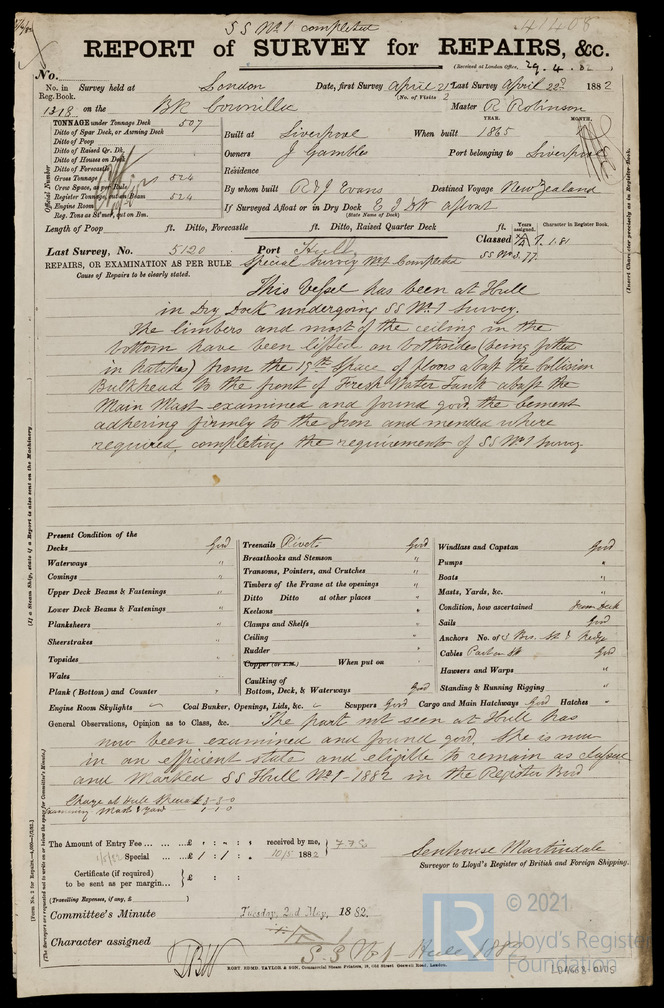 S S No 1 completed
41408
REPORT of SURVEY for REPAIRS, &c.
(Received at London Office, 29.4.82
No.
No. in Reg. Book. Survey held at London Date, first Survey April 21st Last Survey April 22d 1882
(No. of Visits 2
1318 on the Bk Cownillie Master R Robinson
TONNAGE under Tonnage Deck 507
Ditto of Spar Deck, or Awning Deck
Ditto of Poop
Ditto of Raised Qr. Dk.
Ditto of Houses on Deck
Ditto of Forecastle
Gross Tonnage 524
Crew Space, as per Rule
Register Tonnage, cut on Beam 524
Engine Room
Reg. Tons as St'mer, cut on Bm.
Official Number
YEAR. MONTH.
Built at Liverpool When built 1865
Owners J Gambles Port belonging to Liverpool
Residence
By whom built R & J Evans Destined Voyage New Zealand
If Surveyed Afloat or in Dry Dock E I Dk afloat
(State Name of Dock)
Length of Poop ft. Ditto, Forecastle ft. Ditto, Raised Quarter Deck ft.
Years assigned. Character in Register Book.
Classed 7.1.81
SS No 3.77.
Last Survey, No. 5120 Port Hull
REPAIRS, OR EXAMINATION AS PER RULE Special Survey No 1 Completed
Cause of Repairs to be clearly stated.
This Vessel has been at Hull
in Dry Dock undergoing SS No. 1 Survey.
The limbers and most of the ceiling in the
bottom have been lifted on bothsides (being fitted
in hatches) from the 15th Space of floors abaft the Collision
Bulkhead to the front of Fresh Water Tank abaft the
Main Mast examined and found good, the cement
adhering firmly to the Iron and mended where
required, completing the requirements of SS No 1 Survey
Present Condition of the
Decks Good
Waterways "
Comings "
Upper Deck Beams & Fastenings "
Lower Deck Beams & Fastenings "
Planksheers "
Sheerstrakes "
Topsides "
Wales "
Plank (Bottom) and Counter "
Treenails Rivets Good
Breasthooks and Stemson "
Transoms, Pointers, and Crutches "
Timbers of the Frame at the openings "
Ditto Ditto at other places "
Keelsons "
Clamps and Shelfs "
Ceiling "
Rudder "
Copper (or Y.M.) When put on
Caulking of Bottom, Deck, & Waterways Good
Windlass and Capstan Good
Pumps "
Boats "
Masts, Yards, &c. "
Condition, how ascertained from Deck
Sails Good
Anchors No. of 3 Brs. St & Kedge
Cables Part on dk Good
Hawsers and Warps "
Standing & Running Rigging "
Engine Room Skylights Coal Bunker, Openings, Lids, &c. Scuppers Good Cargo and Main Hatchways Good Hatches "
General Observations, Opinion as to Class, &c. The part not seen at Hull has
now been examined and found good. She is now
in an efficient state and eligible to remain as classed
and Marked SS Hull No. 1-1882 in the Register Book
Charge at Hull £3-3-0
Examining Mast & yard 1-1-0
The Amount of Entry Fee ... £ : - : received by me,
Special ... £ 1 : 1 : 10/5 1882
Certificate (if required) to be sent as per margin... £ : :
(Travelling Expenses, if any, £ )
Senhouse Martindale
Surveyor to Lloyd's Register of British and Foreign Shipping.
Committee's Minute Tuesday, 2nd May, 1882.
Character assigned S.S No 1 - Hull 1882
ROBT. EDMD. TAYLOR & SON, Commercial Steam Printers, 19, Old Street Goswell Road, London.
(Insert Character precisely as in Register Book.
(If a Steam Ship, state if a Report is also sent on the Machinery
(The Surveyors are requested not to write on or below the space for Committee's Minute.)
© 2021
LR
Lloyd's Register
Foundation